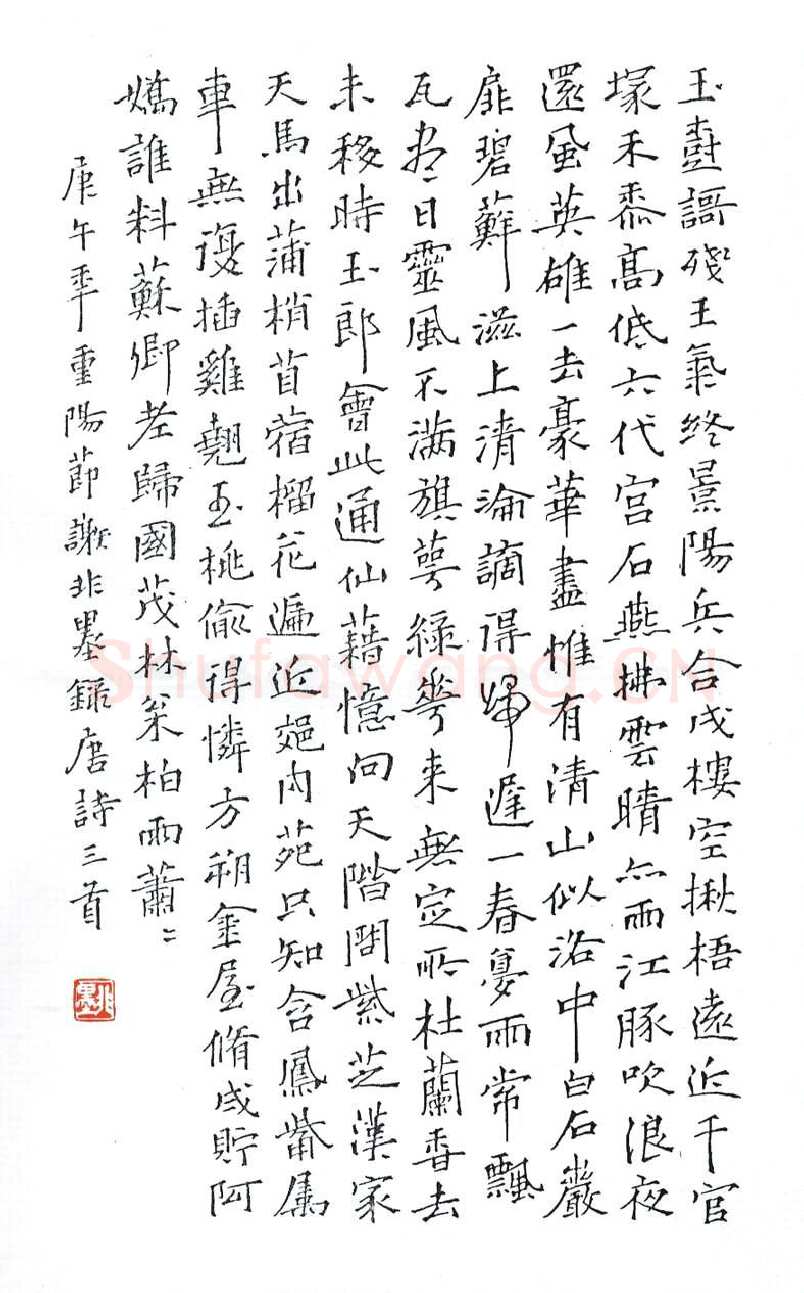 玉樹謌殘王氣終景陽兵合戍樓空楸梧遠近千官
塚禾黍髙低六代宮石燕拂雲晴亦雨江豚吹浪夜
還風英雄一去豪華盡惟有清山似洛中白石巖
扉碧蘚滋上清淪謫得歸遲一春夢雨常飄
瓦盡日靈風不满旗萼綠華来無定所杜蘭香去
未移時玉郎會此通仙藉憶向天階問紫芝漢家
天馬出蒲梢苜蓿榴花遍近郊内苑只知含鳳觜属
車無復插雞翹玉桃偷得憐方朔金屋脩成貯阿
嬌誰料蘇卿老歸國茂林松柏雨蕭〻
庚午年重陽節謝非墨錄唐詩三首
非墨
Shufawang.CN